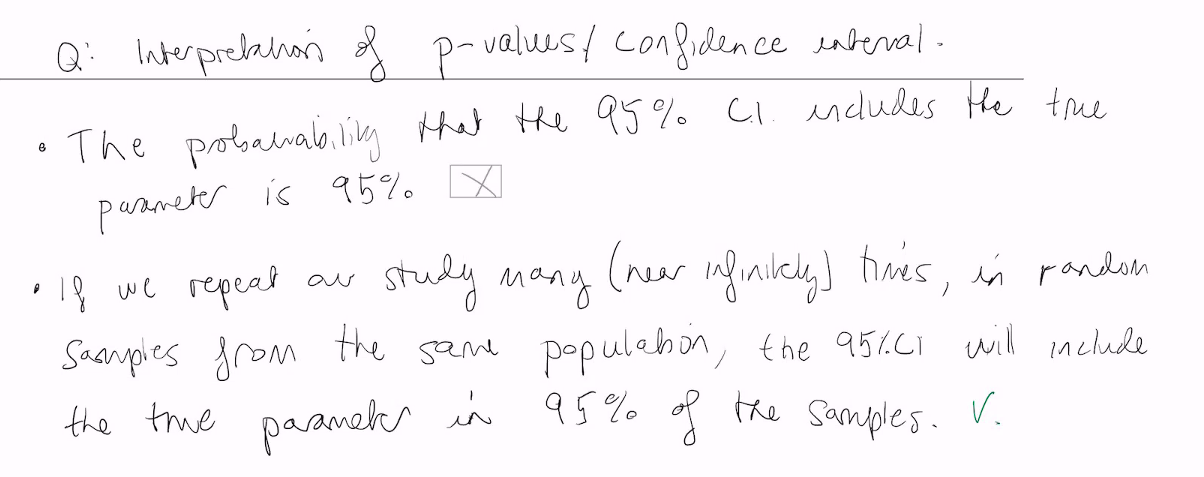 Q: Interpretation of p-values/ confidence interval.
• The probability that the 95% C.I. includes the true
parameter is 95%. X
• If we repeat our study many (near infinitely) times, in random
samples from the same population, the 95% CI will include
the true parameter in 95% of the samples. V.